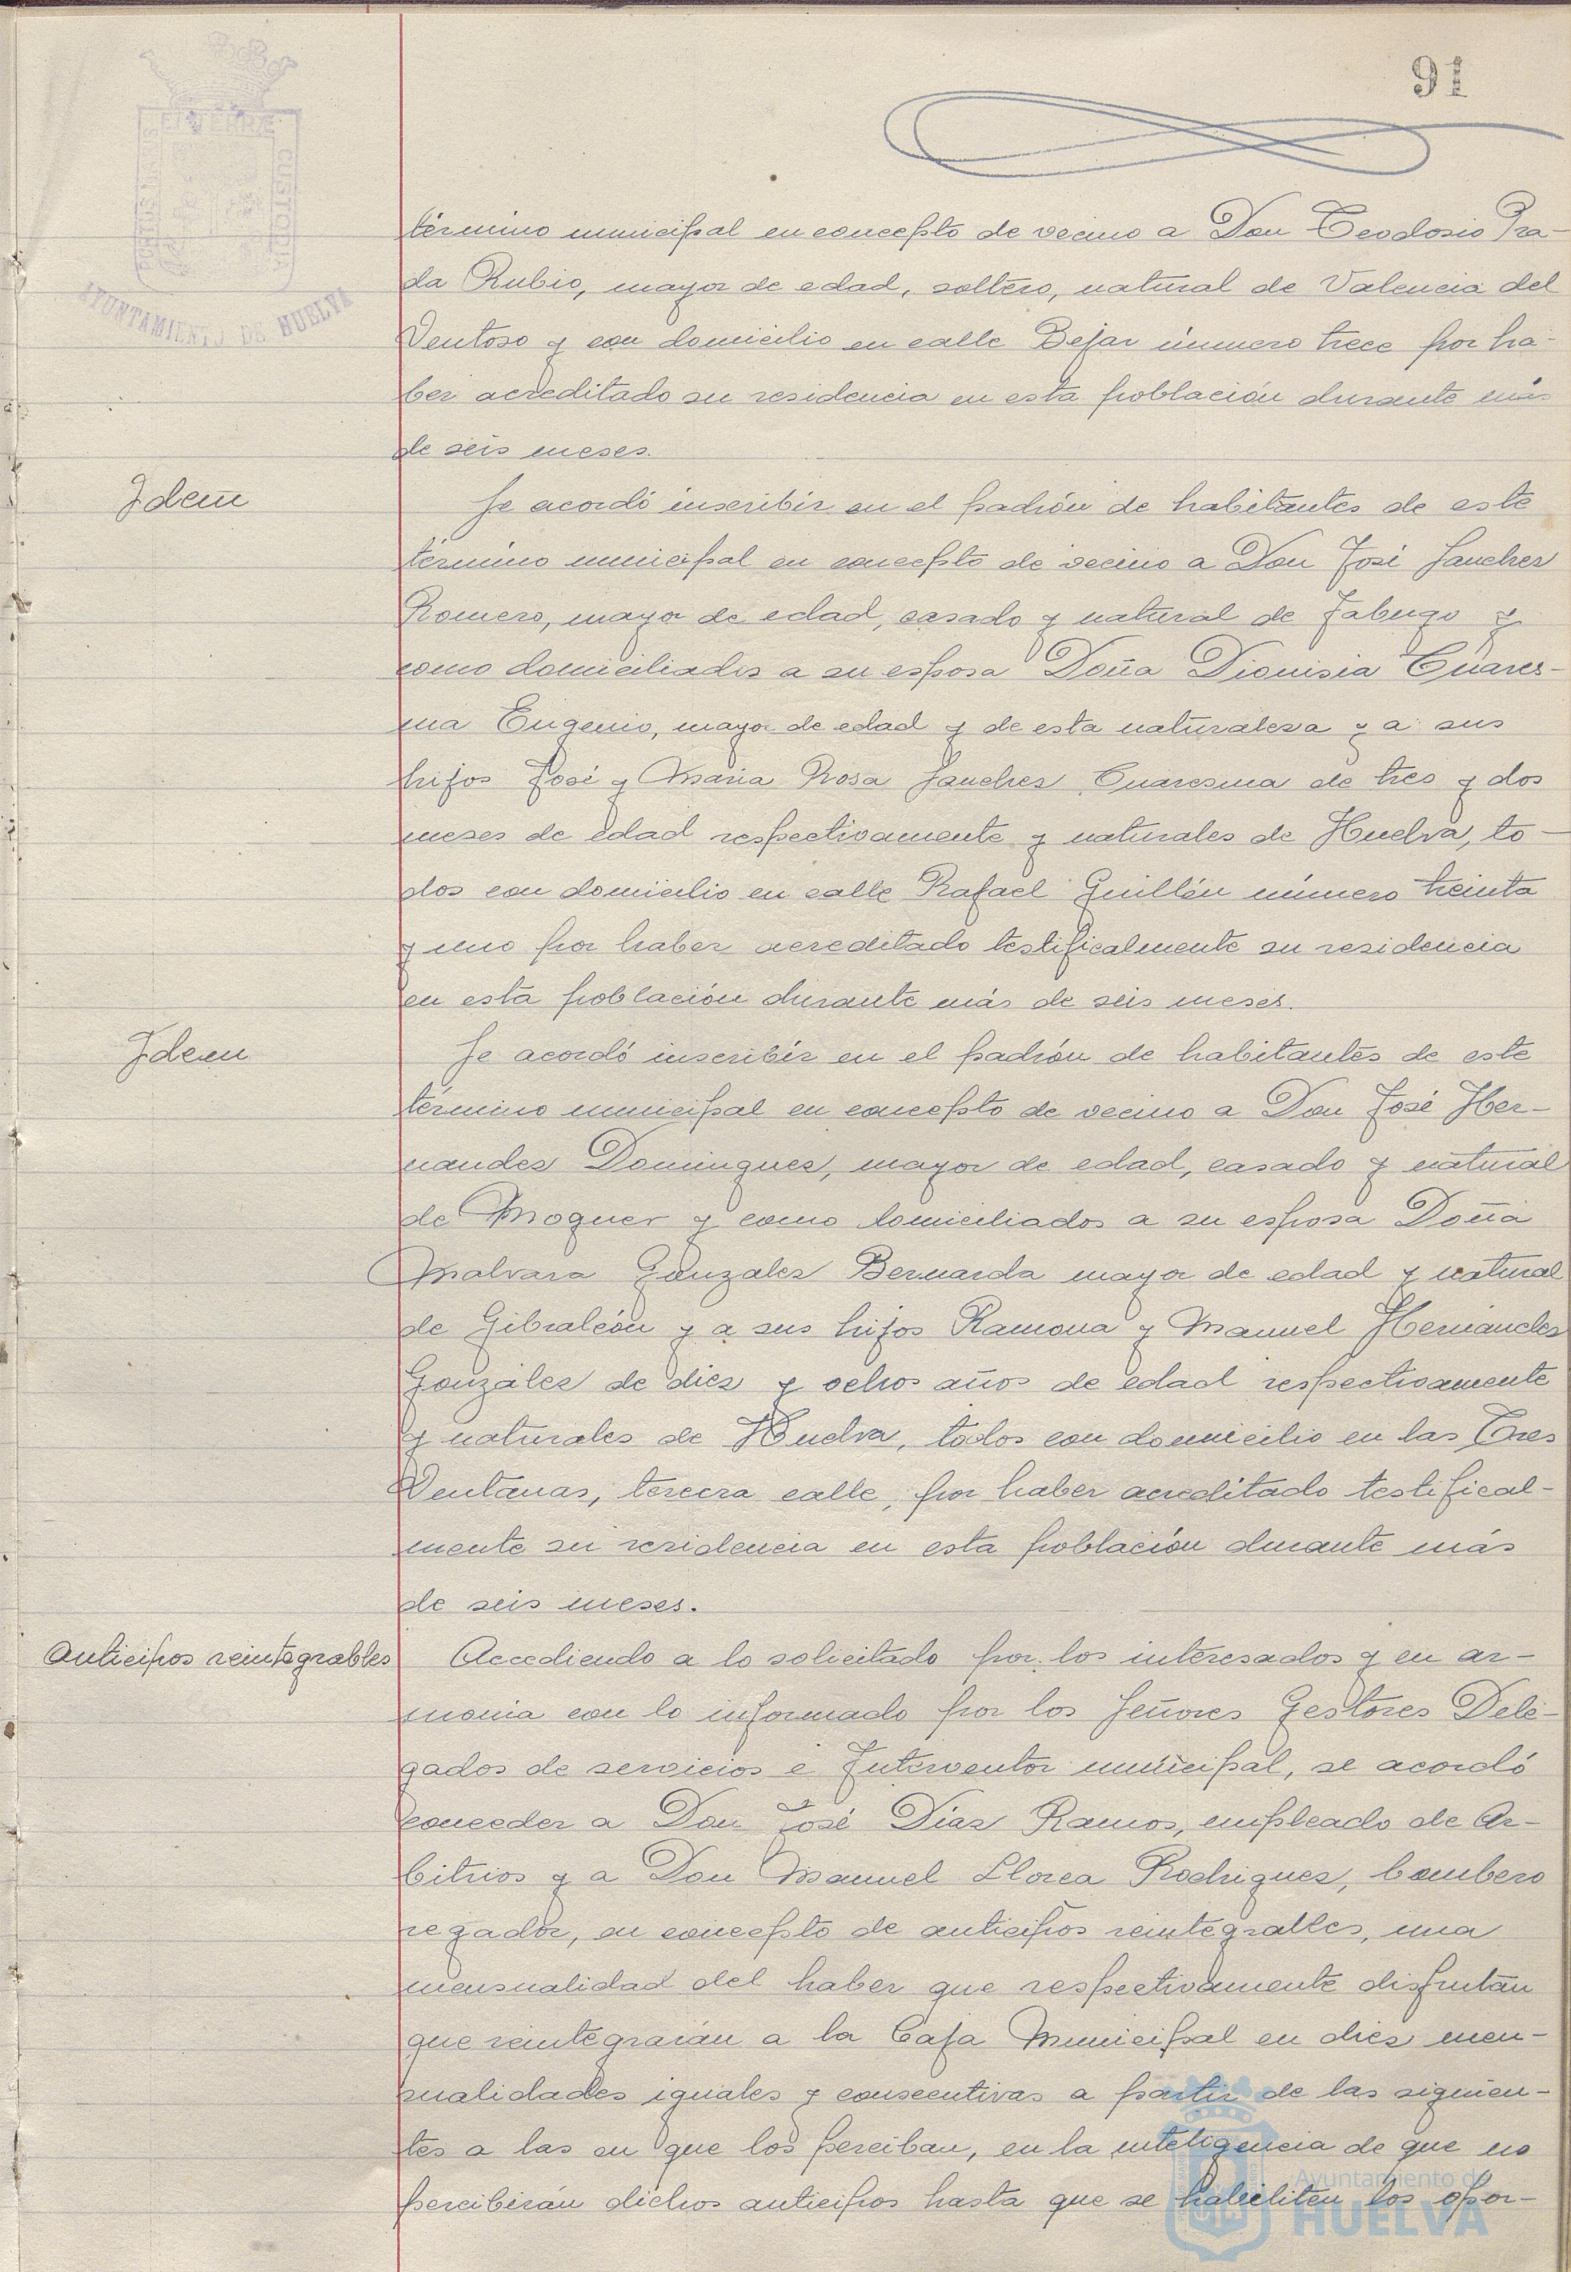 91
PORTUS MARIS
ET TERRÆ
CUSTODIA
AYUNTAMIENTO DE HUELVA
término municipal en concepto de vecino a Don Teodosio Pra-
da Rubio, mayor de edad, soltero, natural de Valencia del
Ventoso y con domicilio en calle Bejar número trece por ha-
ber acreditado su residencia en esta población durante más
de seis meses.
Idem
Se acordó inscribir en el padrón de habitantes de este
término municipal en concepto de vecino a Don José Sanchez
Romero, mayor de edad, casado y natural de Jabugo y
como domiciliados a su esposa Doña Dionisia Cuares-
ma Eugenio, mayor de edad y de esta naturaleza y a sus
hijos José y Maria Rosa Sanchez Cuaresma de tres y dos
meses de edad respectivamente y naturales de Huelva, to-
dos con domicilio en calle Rafael Guillén número treinta
y uno por haber acreditado testificalmente su residencia
en esta población durante más de seis meses.
Idem
Se acordó inscribir en el padrón de habitantes de este
término municipal en concepto de vecino a Don José Her-
nandez Dominguez, mayor de edad, casado y natural
de Moguer y como domiciliados a su esposa Doña
Malvara Gonzalez Bernarda mayor de edad y natural
de Gibraleón y a sus hijos Ramona y Manuel Hernandez
González de diez y ochos años de edad respectivamente
y naturales de Huelva, todos con domicilio en las Tres
Ventanas, tercera calle, por haber acreditado testifical-
mente su residencia en esta población durante más
de seis meses.
Anticipos reintegrables
Accediendo a lo solicitado por los interesados y en ar-
monia con lo informado por los Señores Gestores Dele-
gados de servicios e Interventor municipal, se acordó
conceder a Don José Díaz Ramos, empleado de Ar-
bitrios y a Don Manuel Llorca Rodriguez, bombero
regador, en concepto de anticipos reintegralles, una
mensualidad del haber que respectivamente disfrutan
que reintegrarán a la Caja Municipal en diez men-
sualidades iguales y consecutivas a partir de las siguien-
tes a las en que los perciban, en la inteligencia de que no
percibirán dichos anticipos hasta que se habiliten los opor-
Ayuntamiento de
HUELVA